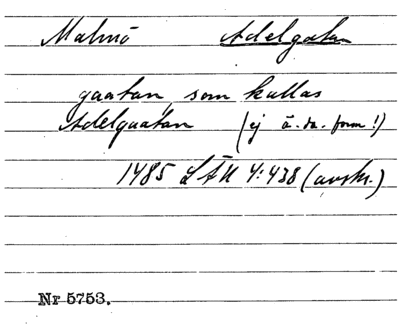 Malmö Adelgatan
gaatan, som kallas
Adelgaatan (ej ä. da. form!)
1485 LÄU 4:438 (avskr.)
Nr 5753.